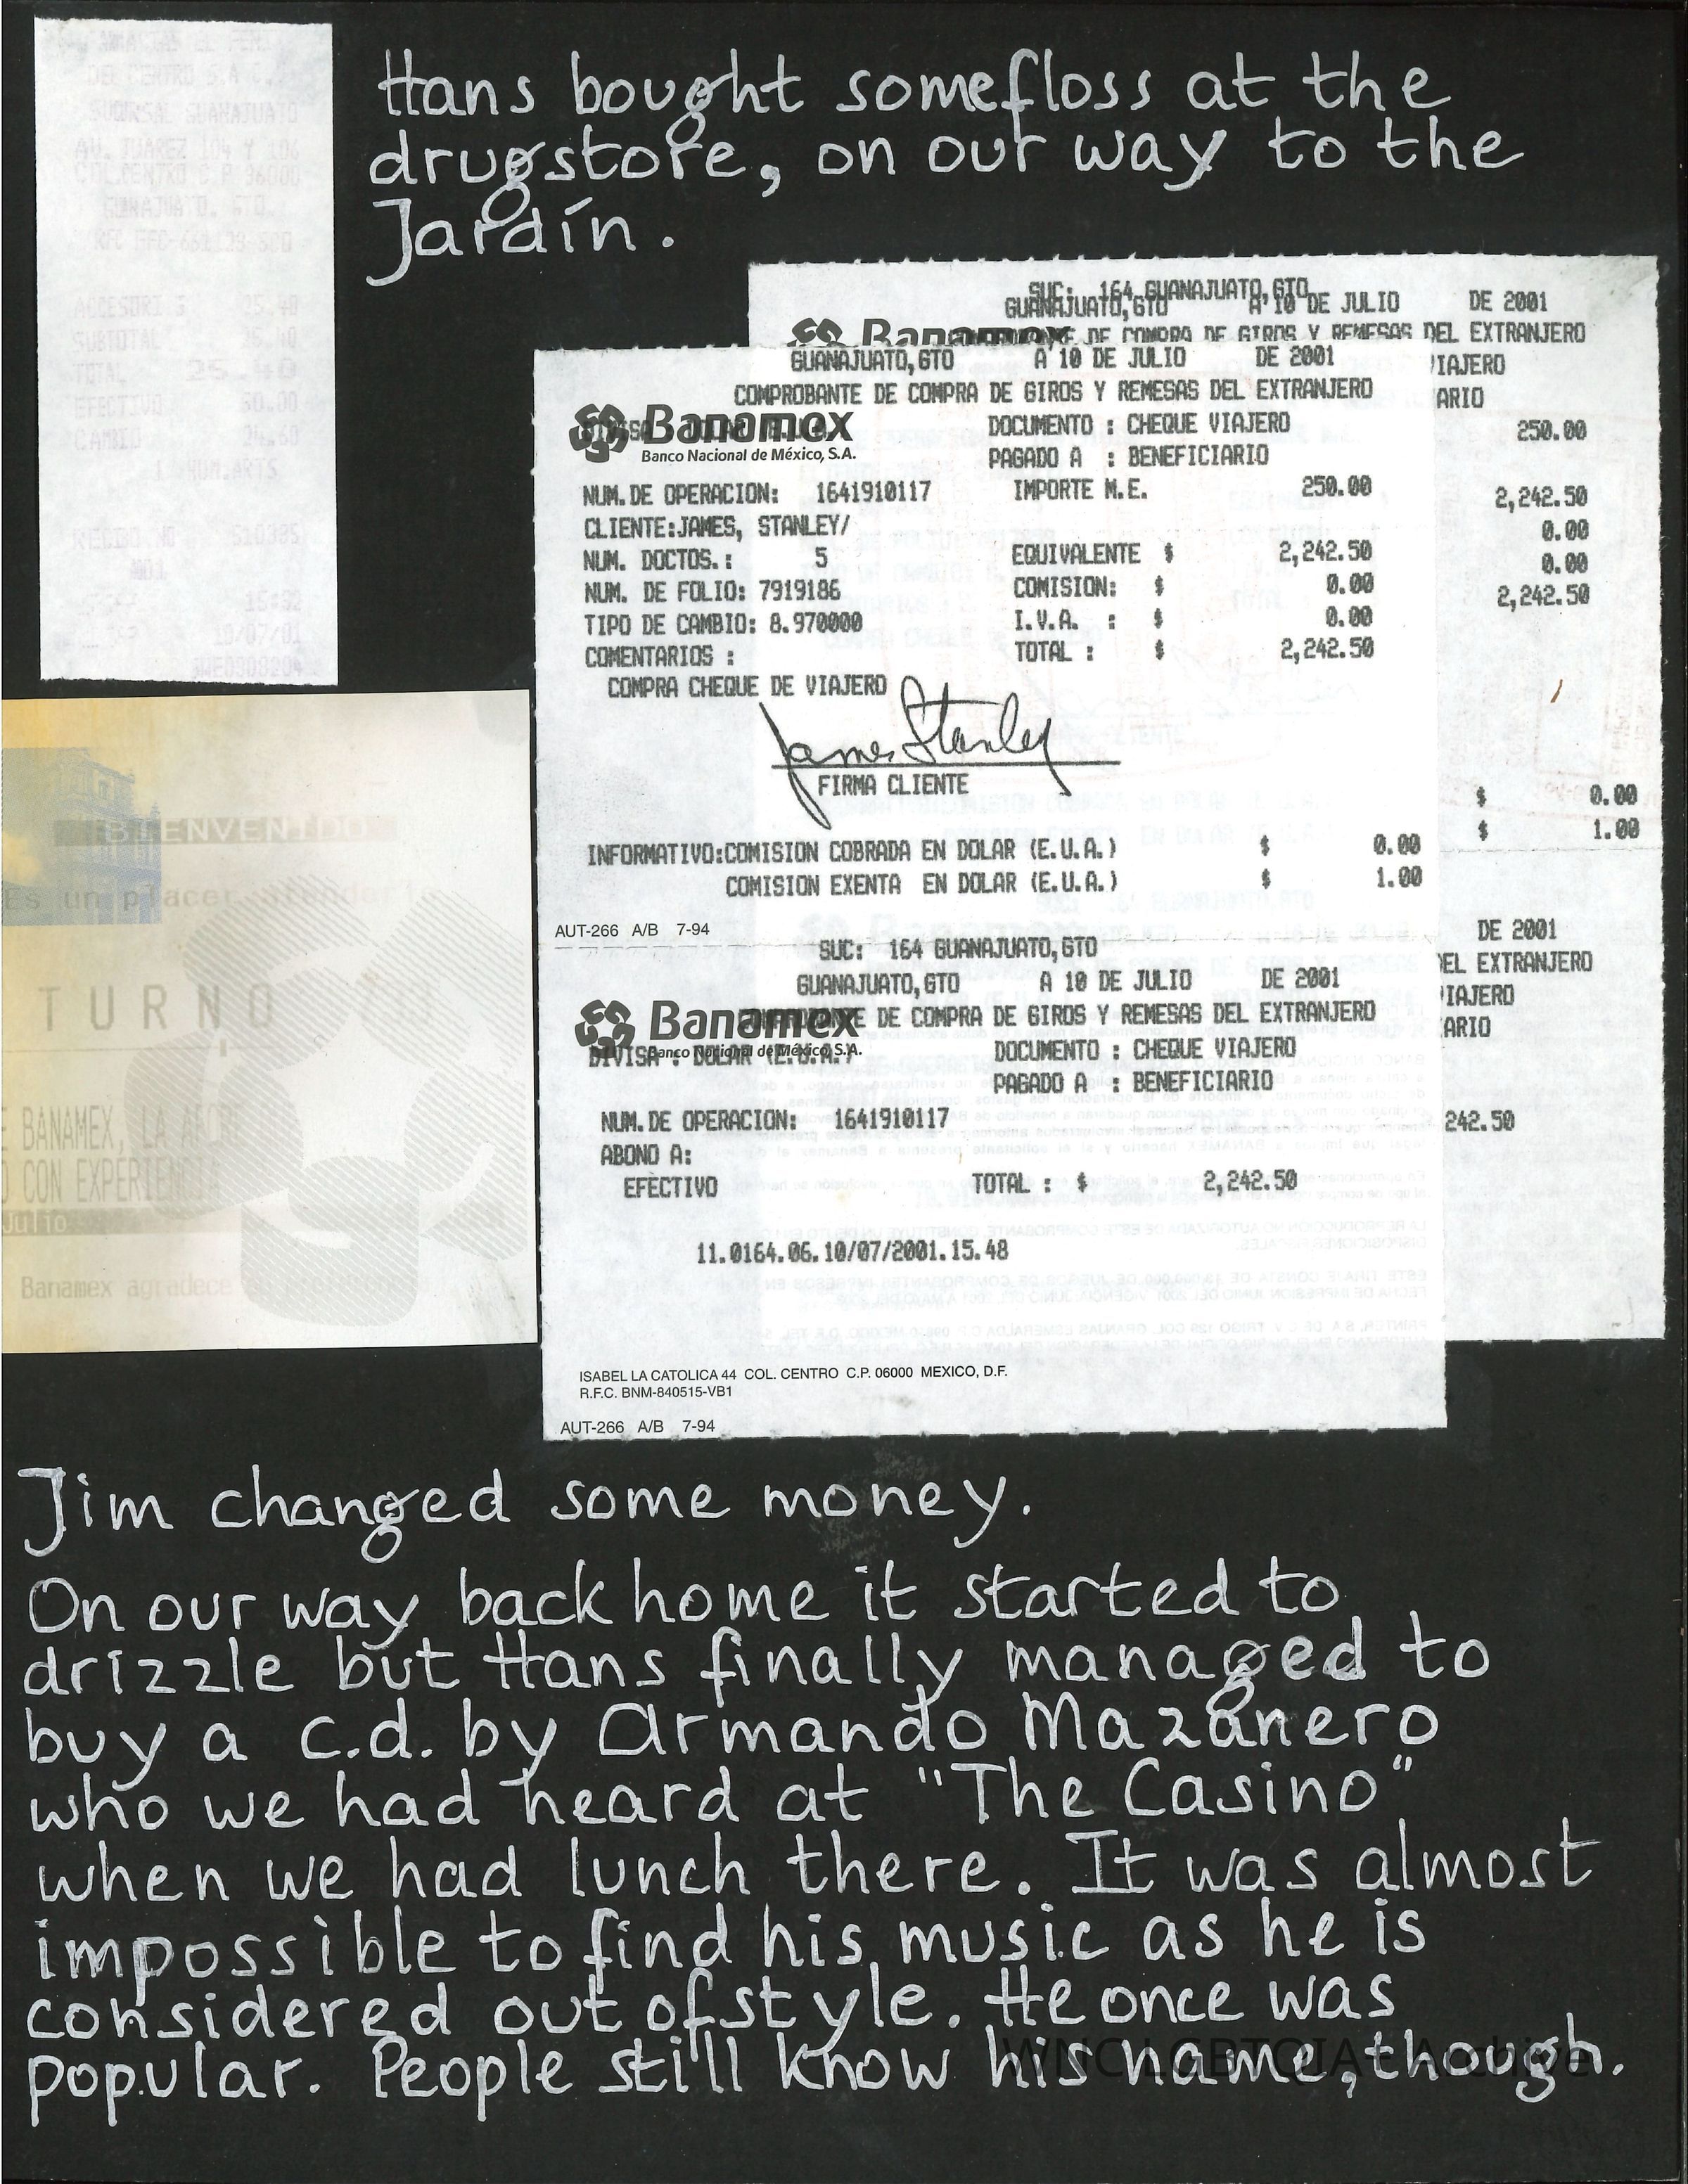 Hans bought some floss at the
drugstore, on our way to the
Jardín.
DEL CENTRO S.A C.
SUCURSAL GUANAJUATO
AV. JUAREZ 104 Y 106
COL.CENTRO C.P 36000
GUANAJUATO, GTO.
ACCESORI 3 25.40
SUBTOTAL 25.40
TOTAL 25.40
EFECTIVO 50.00
CAMBIO 24.60
1 NUM.ARTS
RECIBO NO 510385
15:32
10/07/01
SUC: 164 GUANAJUATO,GTO
GUANAJUATO,GTO A 10 DE JULIO DE 2001
Banamex
DE COMPRA DE GIROS Y REMESAS DEL EXTRANJERO
VIAJERO
ARIO
250.00
2,242.50
0.00
0.00
2,242.50
$ 0.00
$ 1.00
DE 2001
DEL EXTRANJERO
VIAJERO
ARIO
242.50
GUANAJUATO,GTO A 10 DE JULIO DE 2001
COMPROBANTE DE COMPRA DE GIROS Y REMESAS DEL EXTRANJERO
Banamex
Banco Nacional de México, S.A.
DOCUMENTO : CHEQUE VIAJERO
PAGADO A : BENEFICIARIO
NUM.DE OPERACION: 1641910117 IMPORTE M.E. 250.00
CLIENTE:JAMES, STANLEY/
NUM. DOCTOS.: 5 EQUIVALENTE $ 2,242.50
NUM. DE FOLIO: 7919186 COMISION: $ 0.00
TIPO DE CAMBIO: 8.970000 I.V.A. : $ 0.00
COMENTARIOS : TOTAL : $ 2,242.50
COMPRA CHEQUE DE VIAJERO
James Stanley
FIRMA CLIENTE
INFORMATIVO:COMISION COBRADA EN DOLAR (E.U.A.) $ 0.00
COMISION EXENTA EN DOLAR (E.U.A.) $ 1.00
AUT-266 A/B 7-94
SUC: 164 GUANAJUATO,GTO
GUANAJUATO,GTO A 10 DE JULIO DE 2001
Banamex
DE COMPRA DE GIROS Y REMESAS DEL EXTRANJERO
Banco Nacional de México, S.A.
DIVISA : DOLAR (E.U.A.) DOCUMENTO : CHEQUE VIAJERO
PAGADO A : BENEFICIARIO
NUM.DE OPERACION: 1641910117
ABONO A:
EFECTIVO TOTAL : $ 2,242.50
11.0164.06.10/07/2001.15.48
ISABEL LA CATOLICA 44 COL. CENTRO C.P. 06000 MEXICO, D.F.
R.F.C. BNM-840515-VB1
AUT-266 A/B 7-94
BIENVENIDO
Es un placer atenderle
TURNO
BANAMEX, LA
CON EXPERIENCIA
Julio
Banamex agradece su preferencia
Jim changed some money.
On our way back home it started to
drizzle but Hans finally managed to
buy a c.d. by Armando Mazanero
who we had heard at "The Casino"
when we had lunch there. It was almost
impossible to find his music as he is
considered out of style. He once was
popular. People still know his name, though.
WNC LGBTQIA+ Archive